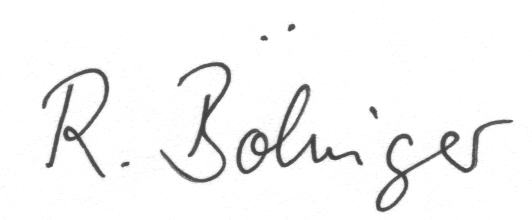 R. Böhniger